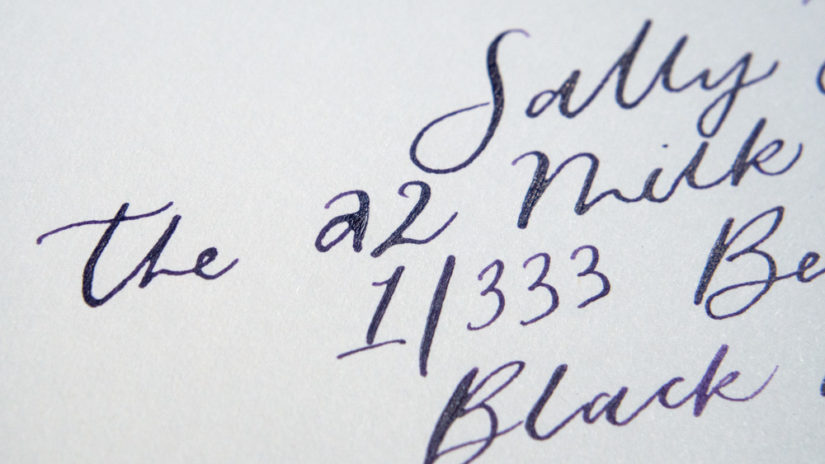 Sally
the a2 Milk
1/333 Be
Black